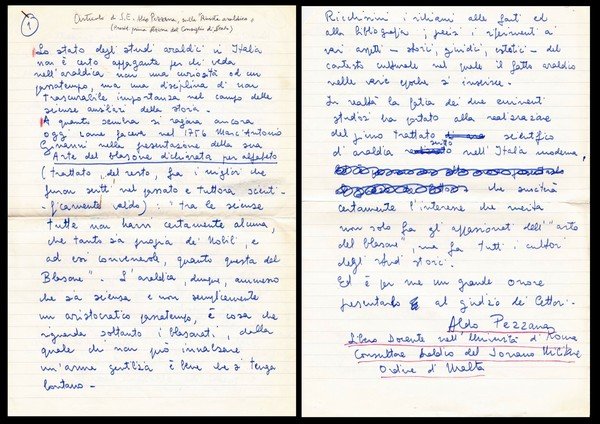 1
Articolo di S.E. Aldo Pezzana, sulla "Rivista araldica"
(Presid. prima sezione del Consiglio di Stato)
Lo stato degli studi araldici in Italia
non è certo appagante per chi veda
nell'araldica non una curiosità od un
passatempo, ma una disciplina di non
trascurabile importanza nel campo delle
scienze ausiliari della storia.
A quanto sembra si ragiona ancora
oggi come faceva nel 1756 Marc'Antonio
Ginanni nella presentazione della sua
"Arte del blasone dichiarata per alfabeto
(trattato, del resto, fra i migliori che
furon scritti nel passato e tuttora scienti-
ficamente valido): "tra le scienze
tutte non havvi certamente alcuna,
che tanto sia propria de' Nobili, e
ad essi convenevole, quanto questa del
Blasone". L'araldica, dunque, ammesso
che sia scienza e non semplicemente
un aristocratico passatempo, è cosa che
riguarda soltanto i blasonati, dalla
quale chi non può innalzare
un'arme gentilizia è bene che si tenga
lontano -
Ricchissimi i richiami alle fonti ed
alla bibliografia; precisi i riferimenti ai
vari aspetti - storici, giuridici, estetici - del
contesto culturale nel quale il fatto araldico
nelle varie epoche si inserisce.
In realtà la fatica dei due eminenti
studiosi ha portato alla realizzazione
del primo trattato scientifico
di araldica scritto nell'Italia moderna,
che susciterà
certamente l'interesse che merita
non solo fra gli appassionati dell'"arte
del blasone", ma fra tutti i cultori
degli studi storici.
Ed è per me un grande onore
presentarlo al giudizio dei lettori.
Aldo Pezzana
Libero Docente nell'Università di Roma
Consultore araldico del Sovrano Militare
Ordine di Malta